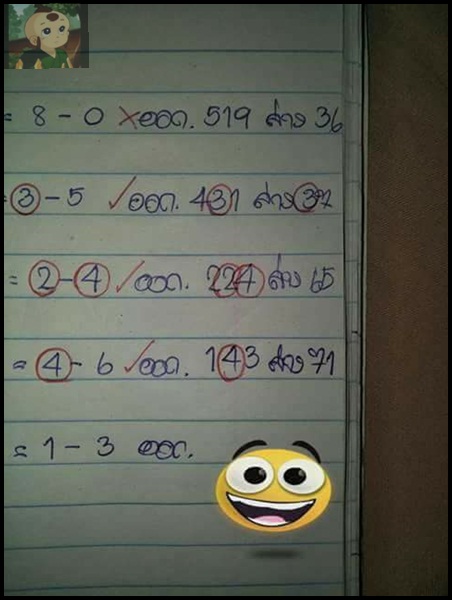 = 8 - 0 × ออก. 519 ล่าง 36
= 3 - 5 ✓ ออก. 431 ล่าง 37
= 2 - 4 ✓ ออก. 224 ล่าง 65
= 4 - 6 ✓ ออก. 143 ล่าง 71
= 1 - 3 ออก.